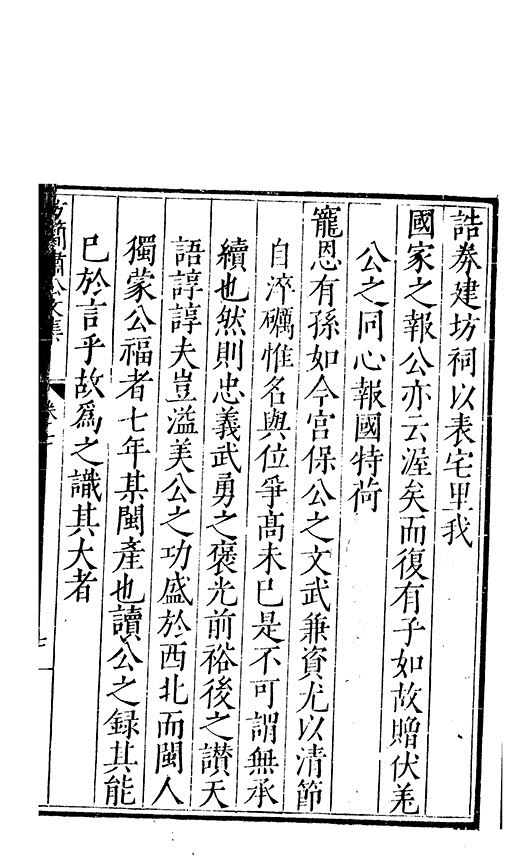 誥券建坊祠以表宅里我
國家之報公亦云渥矣而復有子如故贈伏羌
公之同心報國特荷
寵恩有孫如今宮保公之文武兼資尤以清節
自淬礪惟名與位爭高未已是不可謂無承
續也然則忠義武勇之褒光前裕後之讚天
語諄諄夫豈溢美公之功盛於西北而閩人
獨蒙公福者七年某閩產也讀公之錄其能
已於言乎故爲之識其大者
簡肅公文集
卷七
七